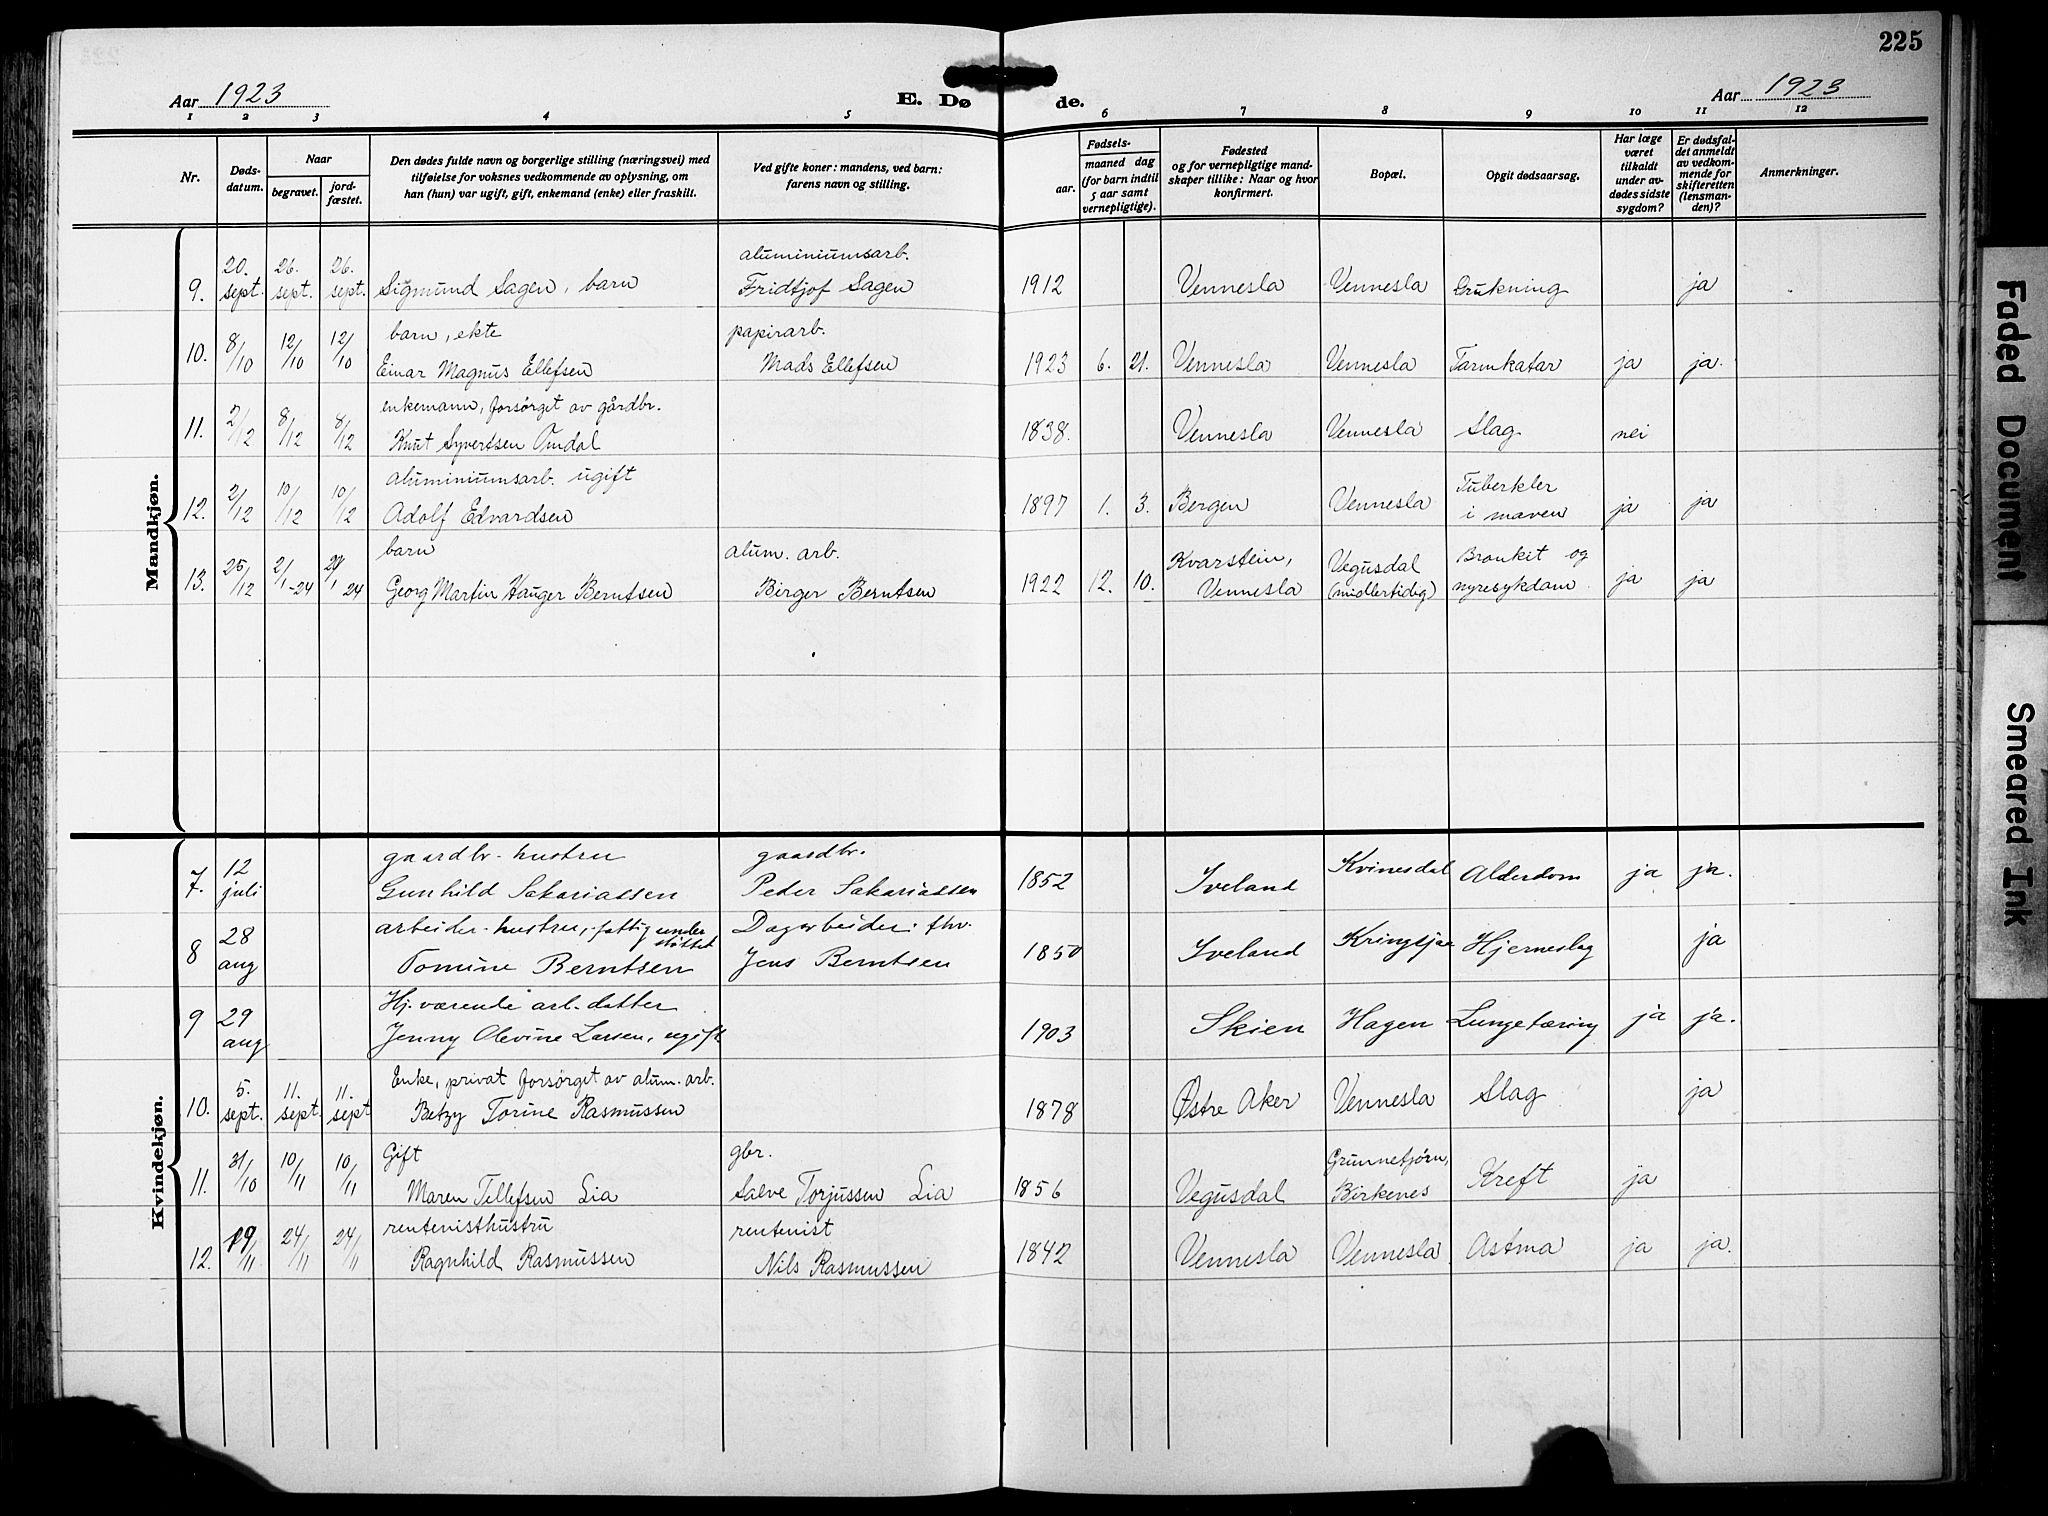 225
Aar 1923
E. Dø
de.
Aar 1923
1 2 3 4 5 6 7 8 9 10 11 12
Nr.
Døds-
datum.
Naar
begravet.
jord-
fæstet.
Den dødes fulde navn og borgerlige stilling (næringsvei) med
tilføielse for voksnes vedkommende av oplysning, om
han (hun) var ugift, gift, enkemand (enke) eller fraskilt.
Ved gifte koner: mandens, ved barn:
farens navn og stilling.
aar.
Fødsels-
maaned dag
(for barn indtil
5 aar samt
vernepligtige).
Fødested
og for vernepligtige mand-
skaper tillike: Naar og hvor
konfirmert.
Bopæl.
Opgit dødsaarsag.
Har læge
været
tilkaldt
under av-
dødes sidste
sygdom?
Er dødsfal-
det anmeldt
av vedkom-
mende for
skifteretten
(lensman-
den)?
Anmerkninger.
Mandkjøn.
20. 26. 26. aluminiumsarb.
9. sept. sept. sept. Sigmund Sagen, barn Fridtjof Sagen 1912 Vennesla Vennesla Drukning ja
barn, ekte papirarb.
10. 8/10 12/10 12/10 Einar Magnus Ellefsen Mads Ellefsen 1923 6. 21. Vennesla Vennesla Tarmkatar ja ja.
enkemann, forsørget av gårdbr.
11. 2/12 8/12 8/12 Knut Syvertsen Omdal 1838. Vennesla Vennesla Slag nei
aluminiumsarb. ugift Tuberkler
12. 2/12 10/12 10/12 Adolf Edvardsen 1897 1. 3. Bergen Vennesla i maven ja ja
barn alum. arb. Kvarstein, Vegusdal Bronkit og
13. 25/12 2/1-24 20/1 24 Georg Martin Hauger Berntsen Birger Berntsen 1922 12. 10. Vennesla (midlertidig) nyresykdom ja ja
Kvindekjøn.
12 gaardbr. hustru gaardbr.
7. juli Gunhild Sakariassen Peder Sakariassen 1852 Iveland Kvinesdal Alderdom ja ja.
28 arbeider-hustru, fattigunder støttet Dagarbeider: fhv.
8 aug Tomine Berntsen Jens Berntsen 1850 Iveland Kringsjaa Hjerneslag ja
Hj. værende arb. datter
9 29 aug Jenny Olevine Larsen, ugift 1903 Skien Hagen Lungetæring ja ja.
5. 11. 11. Enke, privat forsørget av alum. arb.
10. sept. sept. sept Betzy Torine Rasmussen 1878 Østre Aker Vennesla Slag ja
Gift gbr. Grunnetjørn,
11. 31/10 10/11 10/11 Maren Tellefsen Lia Salve Torjussen Lia 1856 Vegusdal Birkenes Kreft ja
rentenisthustru rentenist
12. 19/11 24/11 24/11 Ragnhild Rasmussen Nils Rasmussen 1842 Vennesla Vennesla Astma ja ja.
Faded Document
Smeared Ink